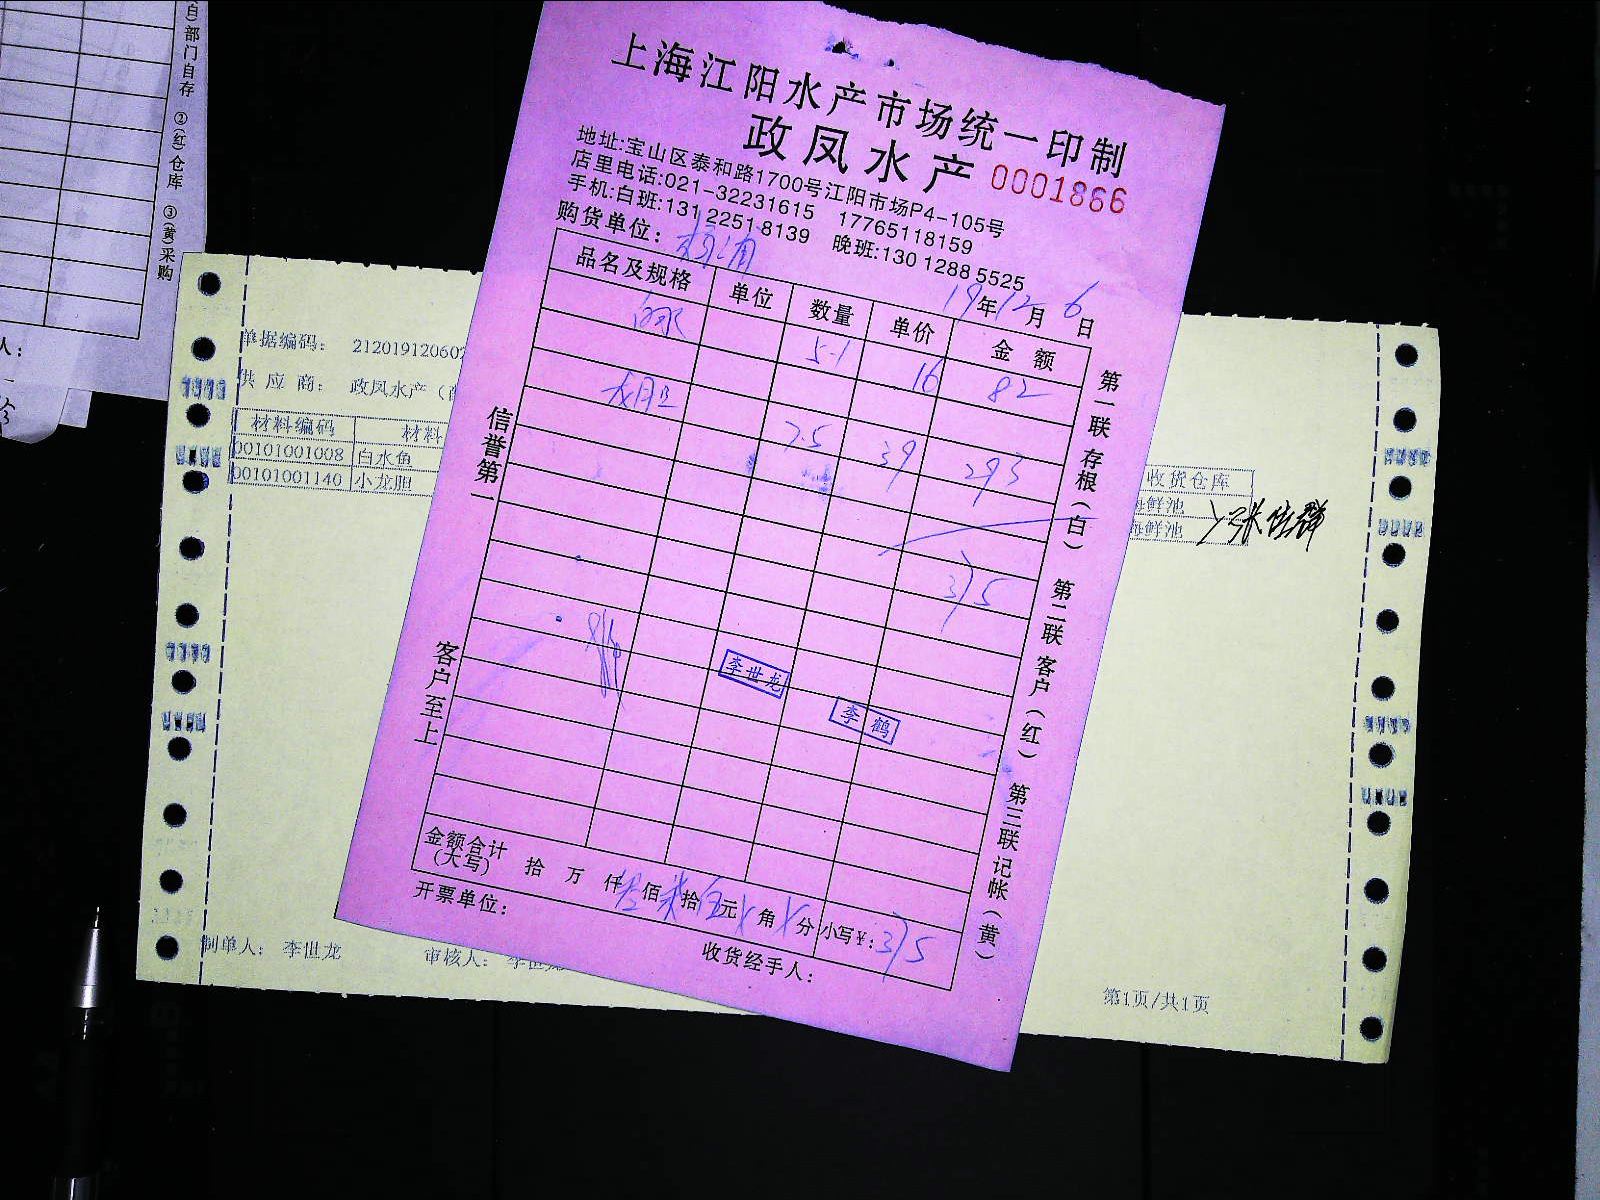 自)部门自存 ②(红)仓库 ③(黄)采购
人:
上海江阳水产市场统一印制
政凤水产 0001866
地址:宝山区泰和路1700号江阳市场P4-105号
店里电话:021-32231615 17765118159
手机:白班:131 2251 8139 晚班:130 1288 5525
购货单位:
19年12月6日
品名及规格 单位 数量 单价 金额
白水 5.1 16 82
龙胆 7.5 39 293
375
李世龙
李鹤
信誉第一
客户至上
第一联存根(白) 第二联客户(红) 第三联记帐(黄)
金额合计(大写) 拾 万 仟叁佰柒拾伍元 角 分 小写¥:375
开票单位:
收货经手人:
单据编码: 21201912060
供应商: 政凤水产(
材料编码 材料
00101001008 白水鱼
00101001140 小龙胆
收货仓库
海鲜池
海鲜池
制单人: 李世龙
审核人: 李世龙
第1页/共1页